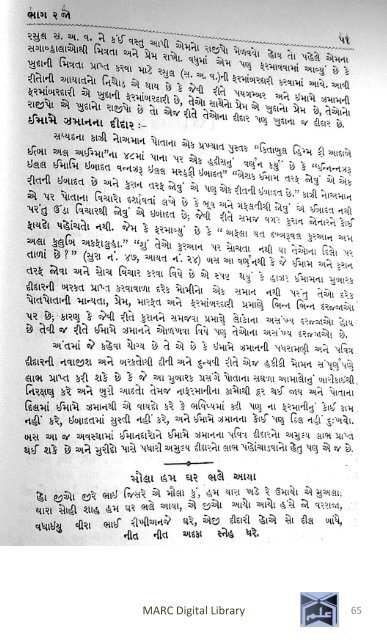 ભાગ ૨ જો
૫૧
રસુલ સ. અ. વ. ને કંઈ વસ્તુ આપી એમનો રાજીપો મેળવવો હોય તો પહેલે એમના
સગાવ્હાલાઓથી મિત્રતા અને પ્રેમ રાખો. વધુમાં એમ પણ ફરમાવવામાં આવ્યું છે કે
ખુદાની મિત્રતા પ્રાપ્ત કરવા માટે રસુલ (સ. અ. વ.)ની ફરમાંબરદારી કરવામાં આવે. આવી
રીતોની આયાતનો નિચોડ એ થાય છે કે જેવી રીતે પયગમ્બર અને ઈમામે ઝમાનની
ફરમાંબરદારી એ ખુદાની ફરમાંબરદારી છે, તેઓ સાથેનો પ્રેમ એ ખોદાના પ્રેમ છે, તેઓનો
રાજીપો એ ખુદાનો રાજીપો છે તો એજ રીતે તેઓના દીદાર પણ ખુદાના જ દીદાર છે.
ઈમામે ઝમાનના દીદાર :–
સય્યદના કાઝી નોઅમાન પોતાના એક પ્રખ્યાત પુસ્તક "કિતાબુલ હિમ્મ ફી આદાબે
ઈત્બા અલ અઈમ્મા"ના ૪૮માં પાના પર એક હદીસનું વર્ણન કર્યું છે કે "ઈન્નન્નઝર
ઈલલ ઈમામિ ઈબાદત વન્નઝર ઈલલ મસહફી ઈબાદત" "બેશક ઈમામ તરફ જોવું એ એક
રીતની ઈબાદત છે અને કુરાન તરફ જોવું એ પણ એક રીતની ઈબાદત છે." કાઝી નોઅમાન
એ પર પોતાના વિચારો દર્શાવતાં લખે છે કે ભૂલ અને ગફલતીથી જોવું એ ઈબાદત નથી
પરંતુ ઉંડા વિચારથી જોવું એ ઈબાદત છે; જેવી રીતે સમજ વગર કુરાન જોનારને કોઈ
ફાયદો પહોંચતો નથી. જેમ કે ફરમાવ્યું છે કે "અફલા યત દબ્બરૂનલ કુરઆન અમ
અલા કુલુબિ અકફાલુહા." "શું તેઓ કુરઆન પર સોચતા નથી યા તેઓના દિલો પર
તાળાં છે ?" (સુરા નં. ૪૭, આયત નં. ૨૪) બસ આ વર્ણનથી કે જે ઈમામ અને કુરાન
તરફ જોવા અને સોચ વિચાર કરવા વિષે છે એ સ્પષ્ટ થયું કે હાઝર ઈમામના મુબારક
દીદારની બરકત પ્રાપ્ત કરવાવાળા દરેક મોમીનો એક સમાન નથી પરંતુ તેઓ દરેક
પોતપોતાની માન્યતા, પ્રેમ, મારફત અને ફરમાંબરદારી પ્રમાણે ભિન્ન ભિન્ન દરજ્જાઓ
પર છે; કારણ કે જેવી રીતે કુરાનને સમજવા પ્રમાણે લોકોના અસંખ્ય દરજ્જાઓ હોય
છે તેવી જ રીતે ઈમામે ઝમાનને ઓળખવા વિષે પણ તેઓના અસંખ્ય દરજ્જાઓ છે.
અંતમાં જે કહેવા યોગ્ય છે તે એ છે કે ઈમામે ઝમાનની પધરામણી અને પવિત્ર
દીદારની નવાજીશ અને બરકતોથી દીની અને દુન્યવી રીતે એજ હકીકી મોમન સંપૂર્ણપણે
લાભ પ્રાપ્ત કરી શકે છે કે જે આ મુબારક પ્રસંગે પોતાના સઘળા આમાલોનું બારીકાઈથી
નિરક્ષણ કરે અને બુરી આદતો તેમજ નાફરમાનીના કામોથી દૂર થઈ જાય અને પોતાના
દિલમાં ઈમામે ઝમાનથી એ વાયદો કરે કે ભવિષ્યમાં કદી પણ ના ફરમાનીનું કોઈ કામ
નહીં કરે, ઈબાદતમાં સુસ્તી નહીં કરે, અને ઈમામે ઝમાનના કોઈ પણ દિલ નહીં દુઃખવે.
બસ આ જ અવસ્થામાં ઈમાનદારોને ઈમામે ઝમાનના પવિત્ર દીદારનો અમુલ્ય લાભ પ્રાપ્ત
થઈ શકે છે અને મુરીદો પાસે પધારી અમુલ્ય દીદારનો લાભ પહોંચાડવાનો હેતુ પણ એ જ છે.
મૌલા હમ ઘર ભલે આયા
હો જીઓ જીરે ભાઈ જિસરે એ મૌલા કું, હમ ચારા ખડે રે ઉમાયો એ મુઅલા
યારા સોહી શાહ હમ ઘર ભલે આયા, એ જીઓ આયો આયો હંસે જો વરરાજા,
વધાઈયું વીરા ભાઈ રીખીઅનજે ઘરે, એજી દીદારી હોએ સો દીલ બાંધે,
નીત નીત અદકા સ્નેહ ધરે.
MARC Digital Library
65